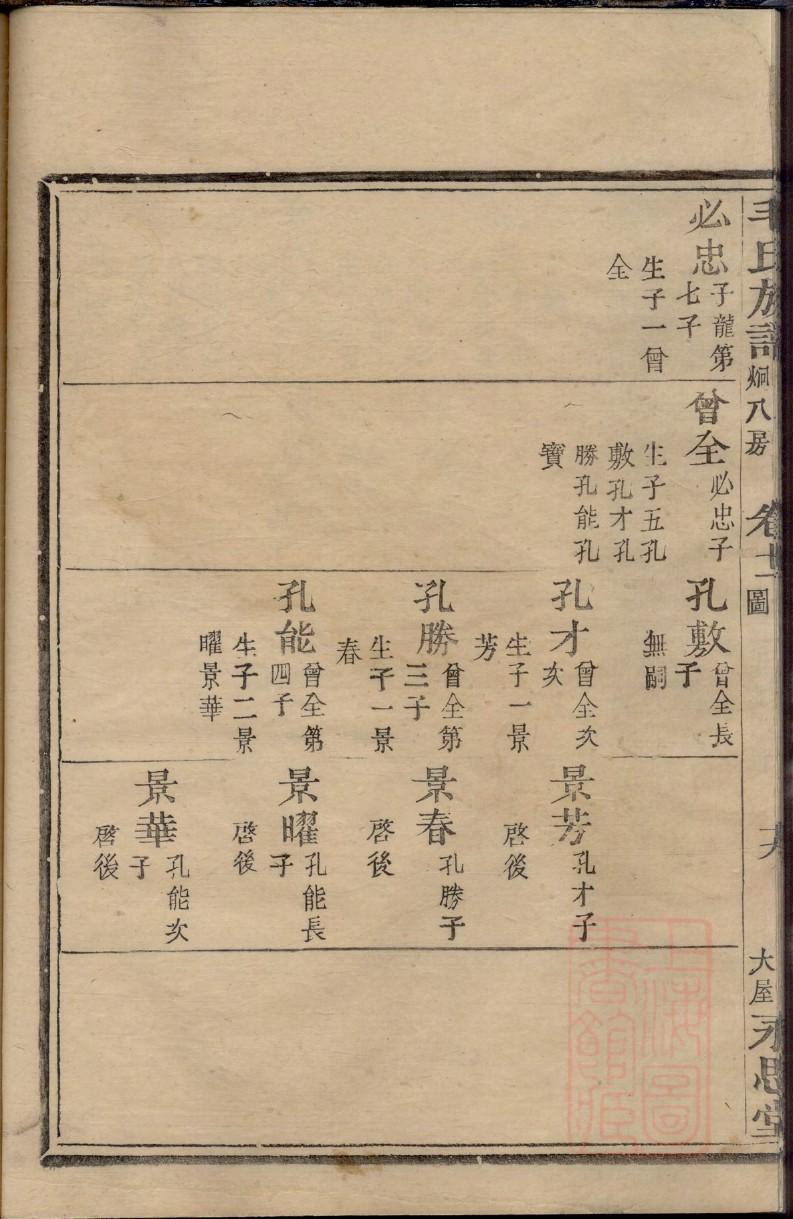 毛氏族譜 炯八房 卷十一 圖
大屋 永思堂
必忠 子龍第
七子
生子一曾
全
曾全 必忠子
生子五孔
敷孔才孔
勝孔能孔
寶
孔敷 曾全長
子
無嗣
孔才 曾全次
次
生子一景
芳
孔勝 曾全第
三子
生子一景
春
孔能 曾全第
四子
生子二景
曜景華
景芳 孔才子
啓後
景春 孔勝子
啓後
景曜 孔能長
子
啓後
景華 孔能次
子
啓後
上海圖
書館藏